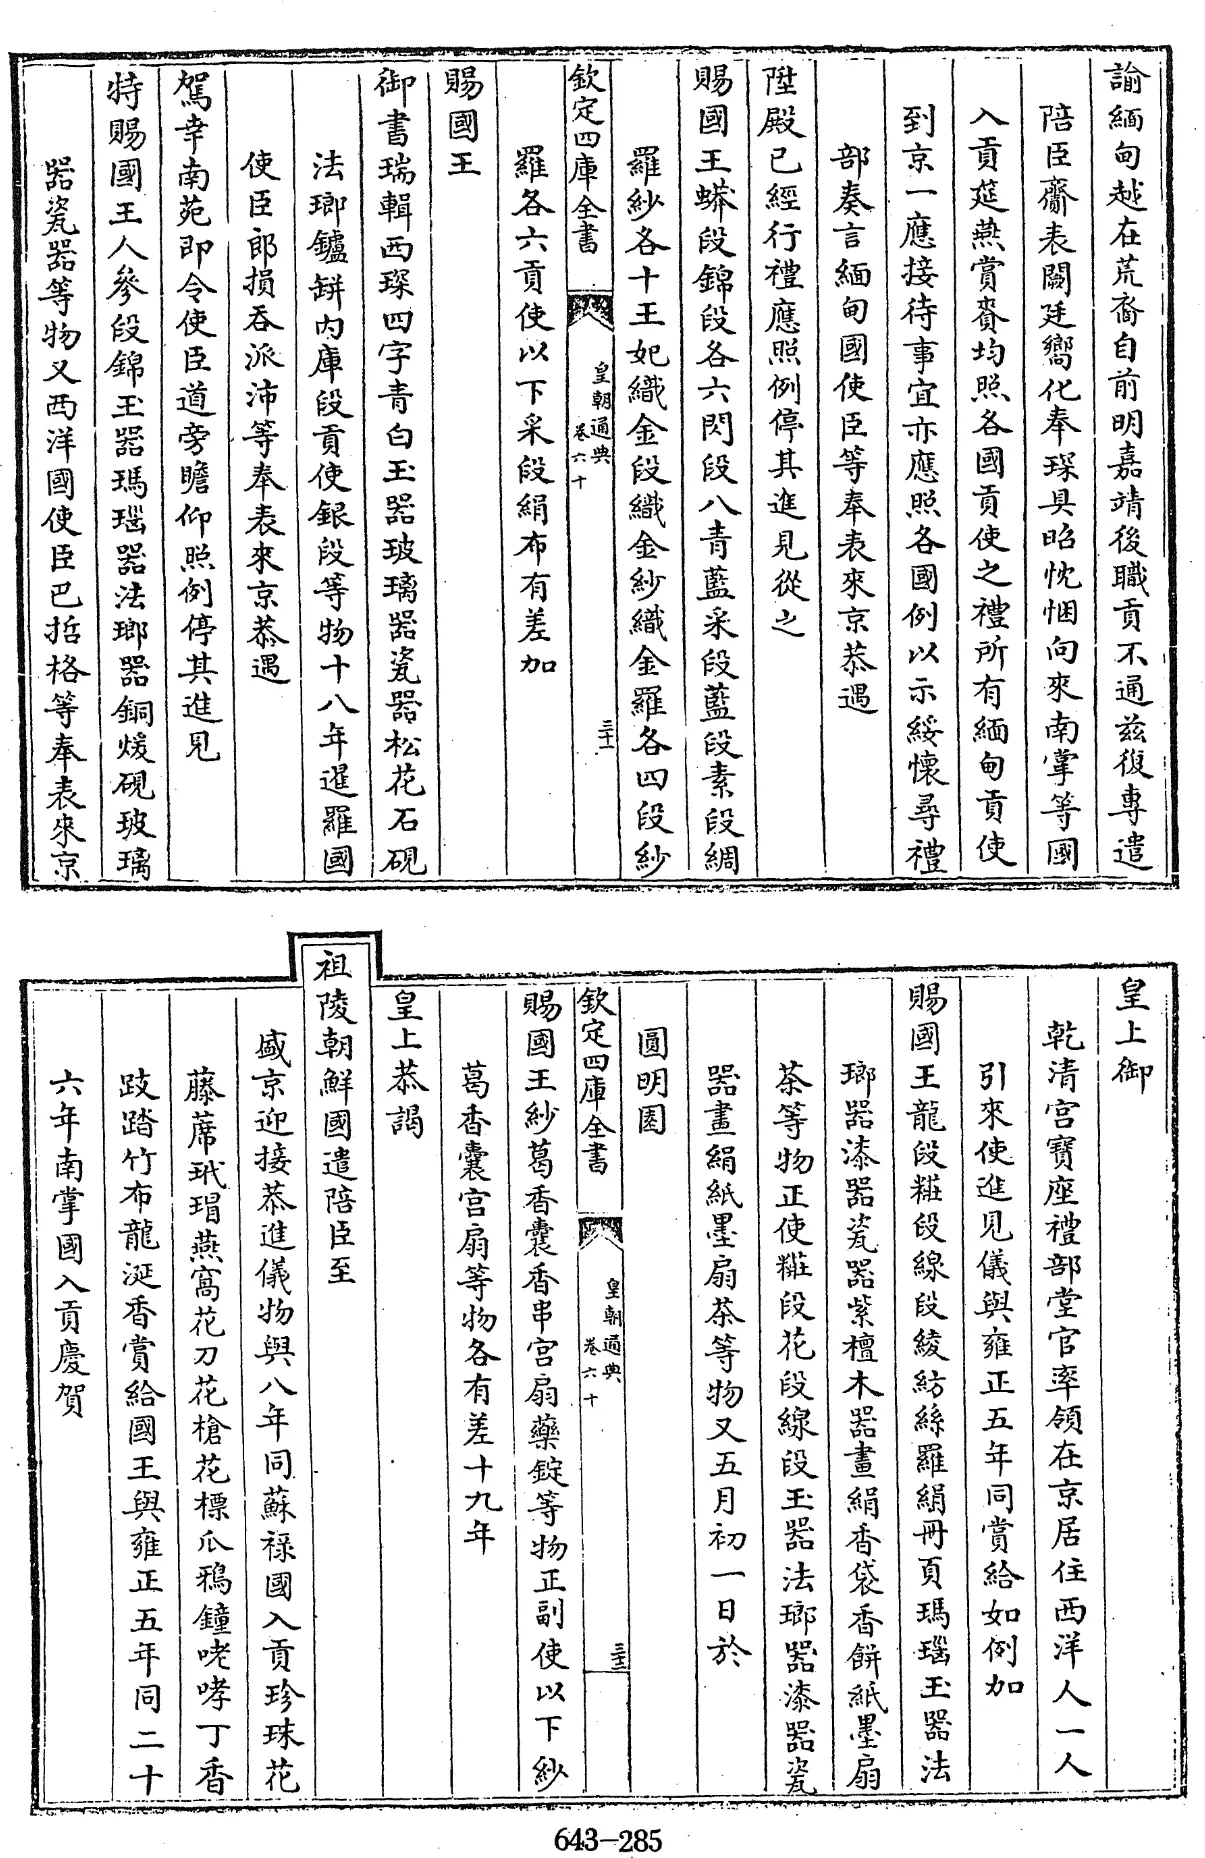 諭緬甸越在荒裔自前明嘉靖後職貢不通兹復專遣
陪臣齎表闕廷嚮化奉琛具昭忱悃向來南掌等國
入貢筵燕賞賚均照各國貢使之禮所有緬甸貢使
到京一應接待事宜亦應照各國例以示綏懷尋禮
部奏言緬甸國使臣等奉表來京恭遇
陞殿已經行禮應照例停其進見從之
賜國王蟒段錦段各六閃段八青藍采段藍段素段綢
羅紗各十王妃織金段織金紗織金羅各四段紗
欽定四庫全書
皇朝通典
卷六十
三十一
羅各六貢使以下采段絹布有差加
賜國王
御書瑞輯西琛四字青白玉器玻璃器瓷器松花石硯
法瑯鑪缾内庫段貢使銀段等物十八年暹羅國
使臣郎損吞派沛等奉表來京恭遇
駕幸南苑即令使臣道旁瞻仰照例停其進見
特賜國王人參段錦玉器瑪瑙器法瑯器銅煖硯玻璃
器瓷器等物又西洋國使臣巴哲格等奉表來京
皇上御
乾清宮寶座禮部堂官率領在京居住西洋人一人
引來使進見儀與雍正五年同賞給如例加
賜國王龍段糚段線段綾紡絲羅絹冊頁瑪瑙玉器法
瑯器漆器瓷器紫檀木器畫絹香袋香餅紙墨扇
茶等物正使糚段花段線段玉器法瑯器漆器瓷
器畫絹紙墨扇茶等物又五月初一日於
圓明園
欽定四庫全書
皇朝通典
卷六十
三十二
賜國王紗葛香囊香串宮扇藥錠等物正副使以下紗
葛香囊宮扇等物各有差十九年
皇上恭謁
祖陵朝鮮國遣陪臣至
盛京迎接恭進儀物與八年同蘇祿國入貢珍珠花
藤蓆玳瑁燕窩花刀花槍花標瓜鴉鐘咾哮丁香
跂踏竹布龍涎香賞給國王與雍正五年同二十
六年南掌國入貢慶賀
643-285